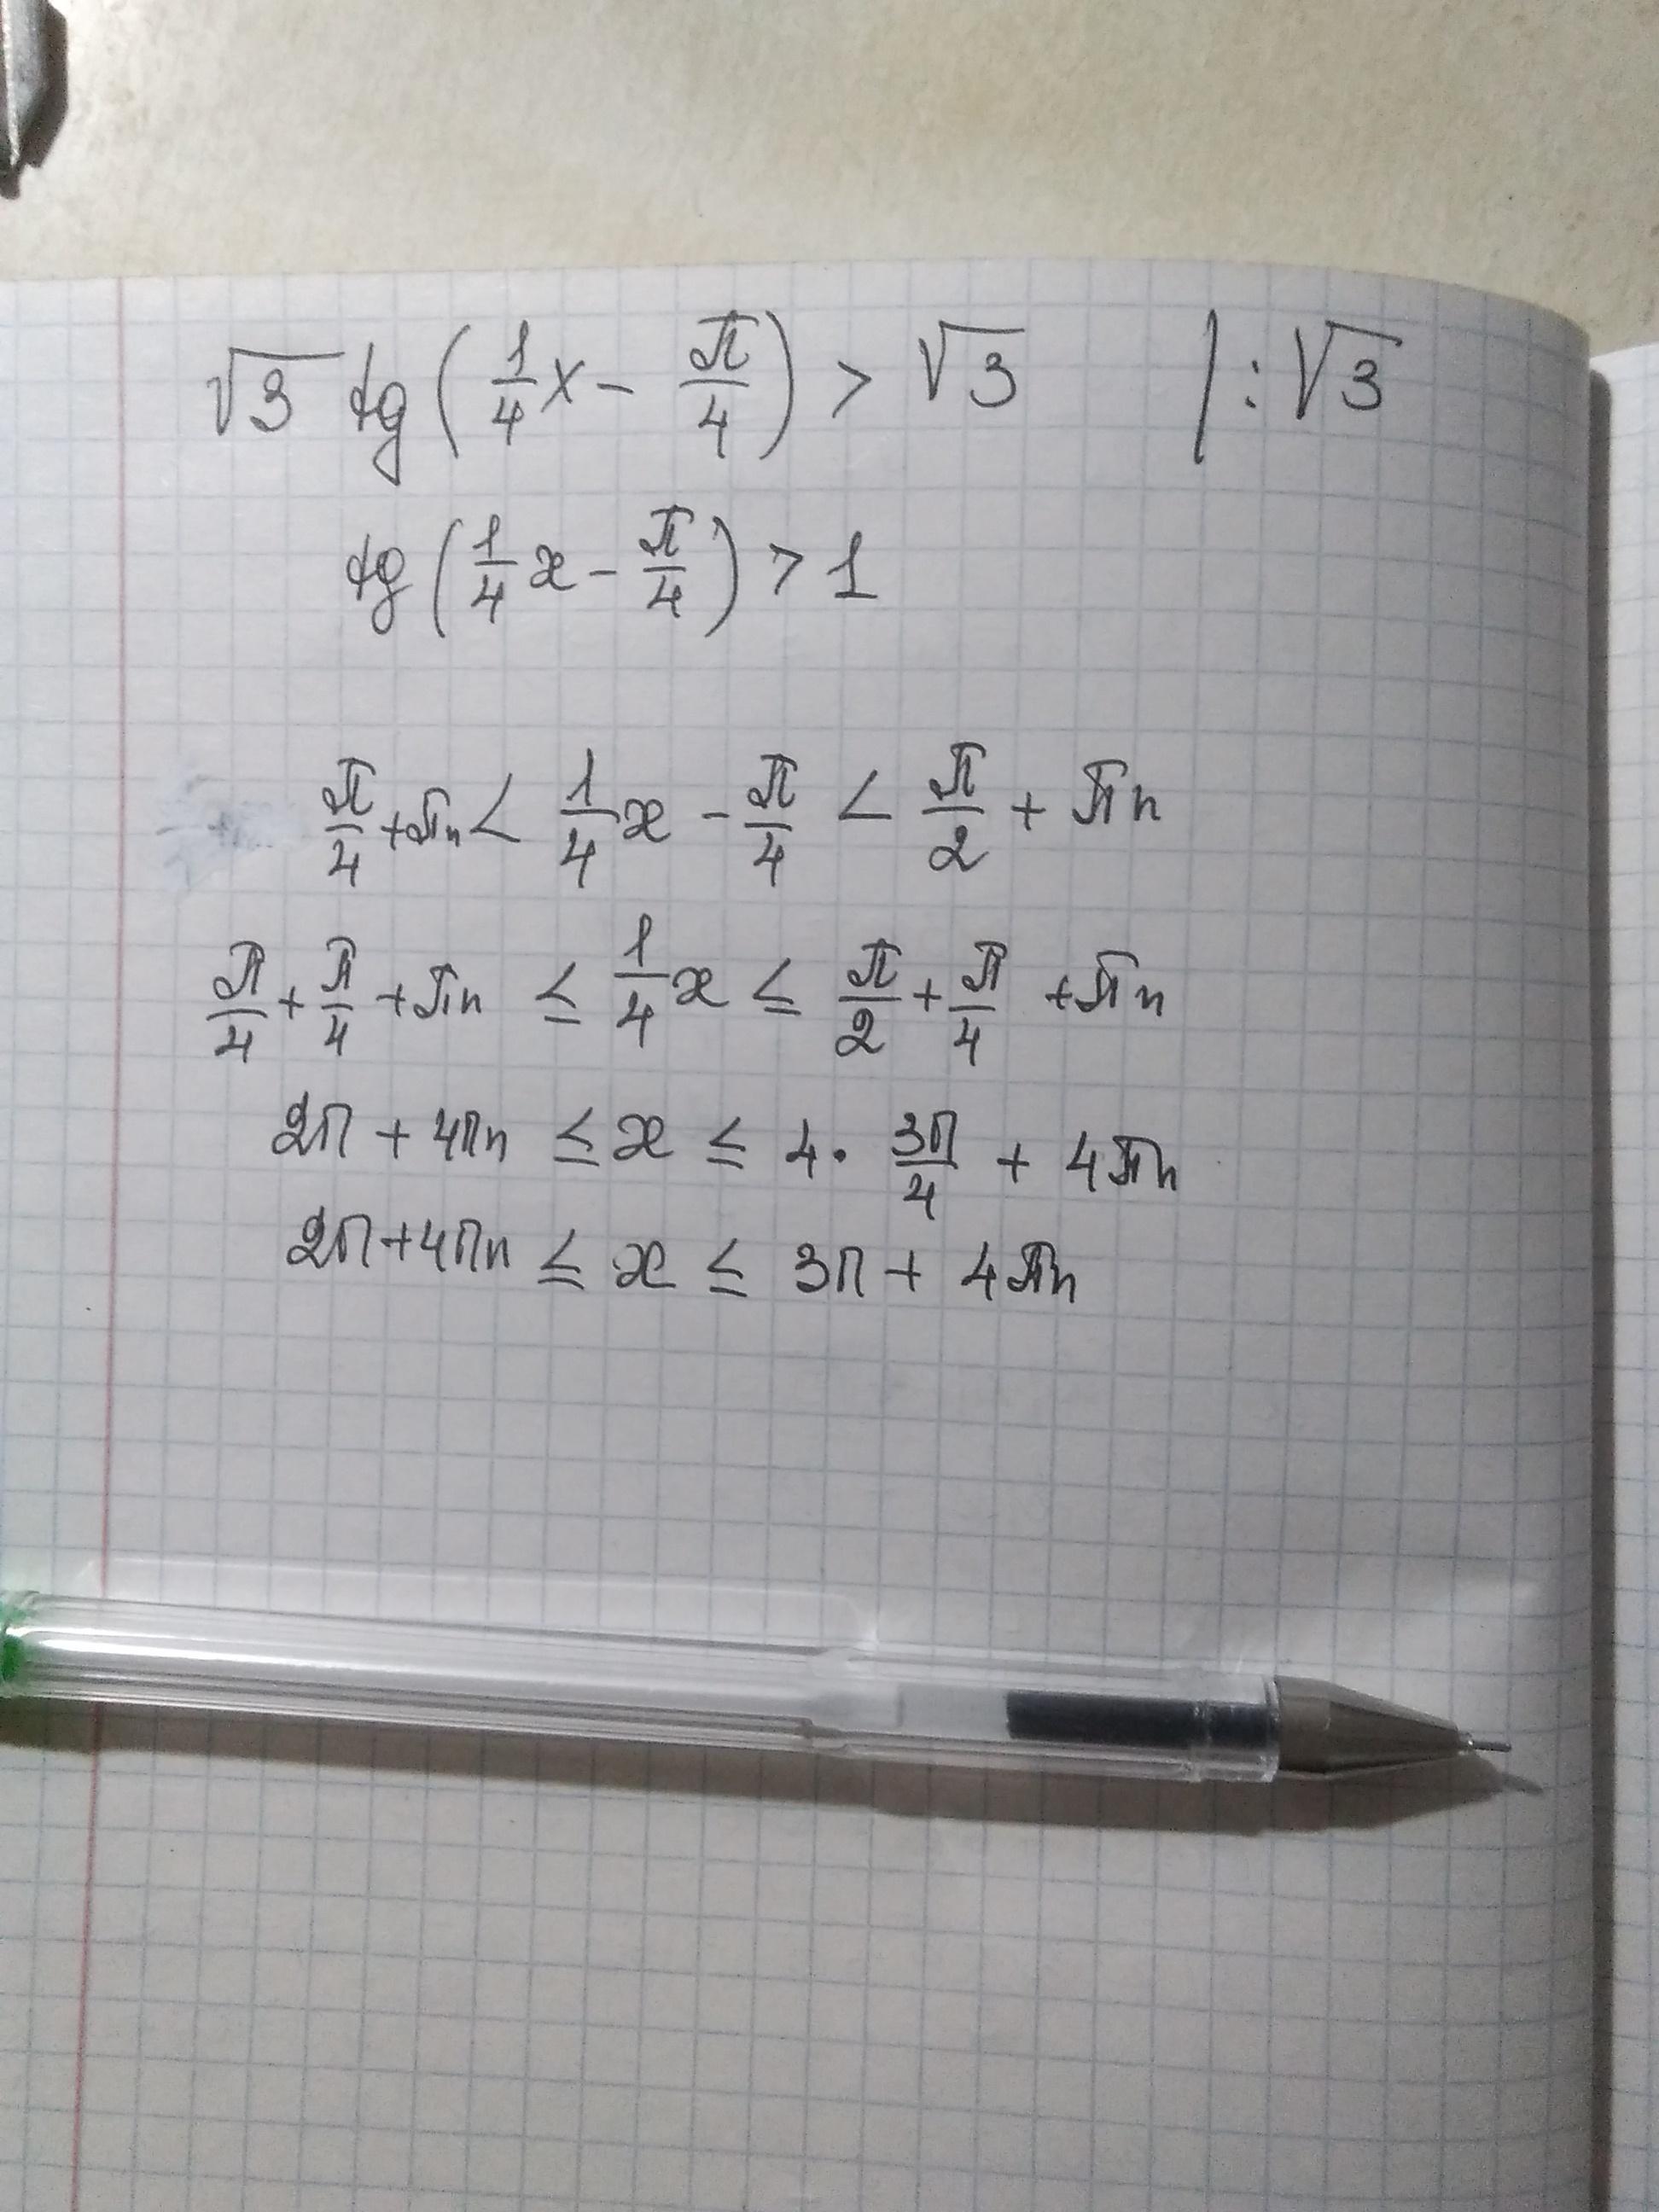 √3 tg(1/4 x - π/4) > √3 | : √3
tg(1/4 x - π/4) > 1
π/4 + πn < 1/4 x - π/4 < π/2 + πn
π/4 + π/4 + πn ≤ 1/4 x ≤ π/2 + π/4 + πn
2π + 4πn ≤ x ≤ 4 · 3π/4 + 4πn
2π + 4πn ≤ x ≤ 3π + 4πn